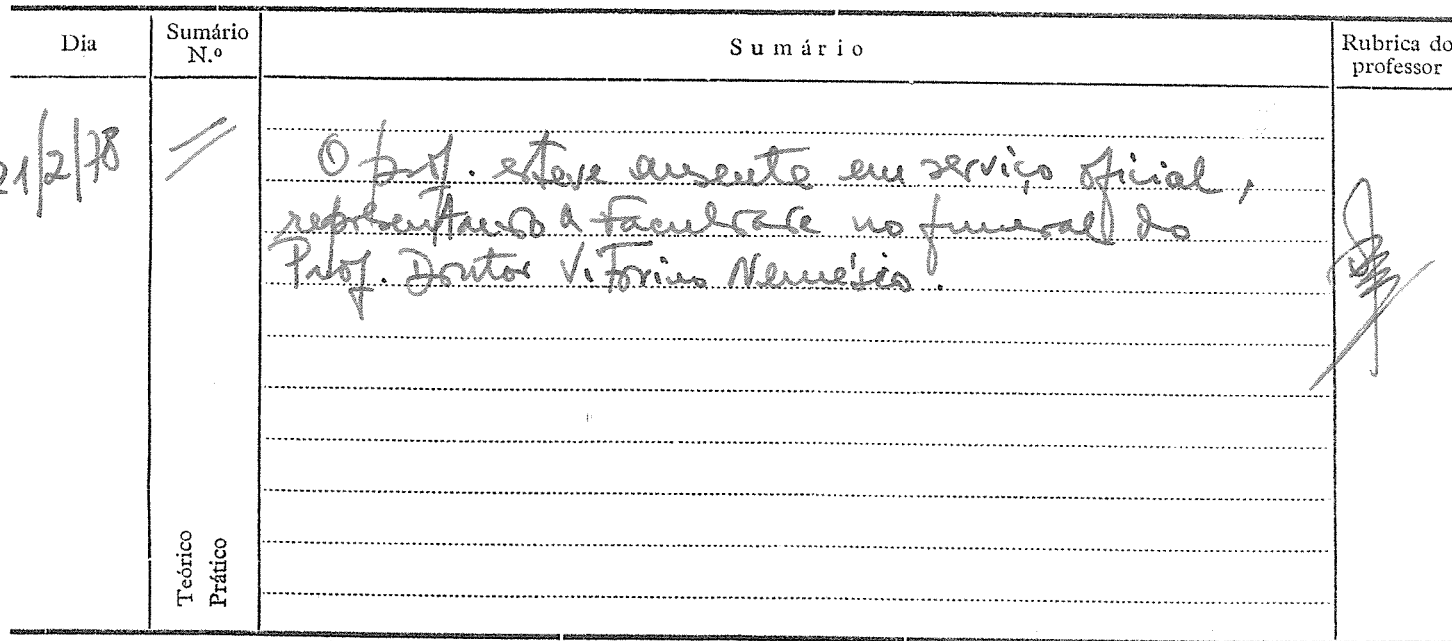 Dia
Sumário
N.º
Sumário
Rubrica do
professor
21/2/78
O prof. esteve ausente em serviço oficial,
representando a Faculdade no funeral do
Prof. Doutor Vitorino Nemésio.
Teórico
Prático